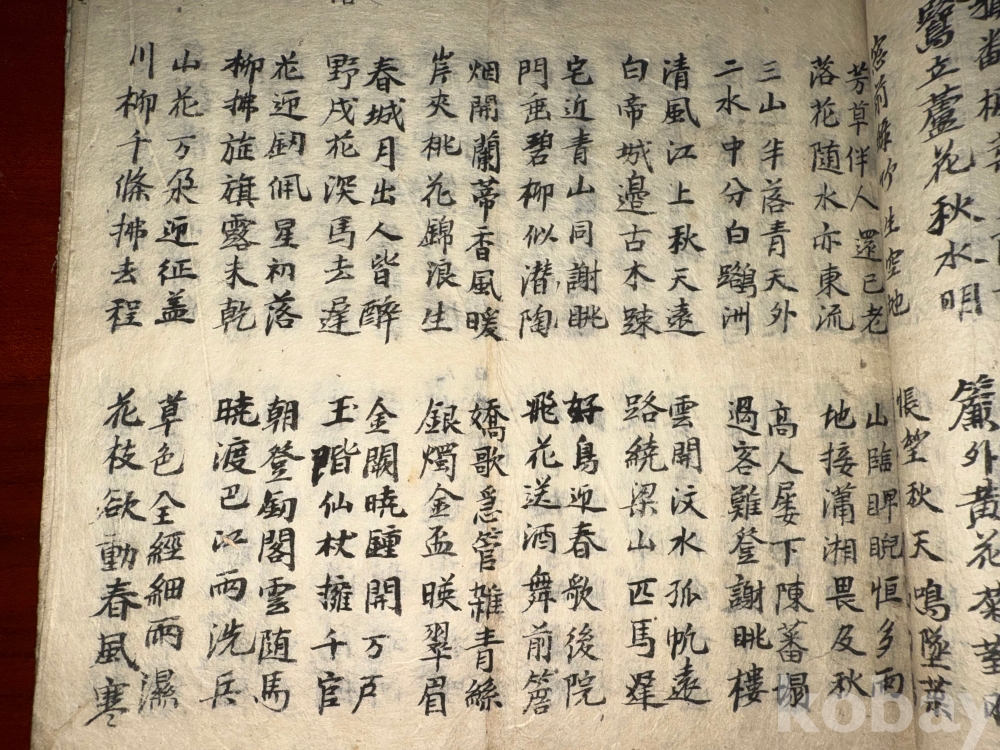 鷺立蘆花秋水明
窓前緑竹生空地
芳草伴人還已老
落花随水亦東流
三山半落青天外
二水中分白鷺洲
清風江上秋天遠
白帝城邊古木踈
宅近青山同謝眺
門垂碧柳似潜陶
烟開蘭蒂香風暖
岸夾桃花錦浪生
春城月出人皆醉
野戍花深馬去遅
花迎釼佩星初落
柳拂旌旗露未乾
山花万朶迎征盖
川柳千條拂去程
簾外黄花菊
悵望秋天鳴墜葉
山臨睥睨恒多雨
地接瀟湘畏及秋
高人屡下陳蕃榻
過客難登謝眺樓
雲開汶水孤帆遠
路繞梁山匹馬遅
好鳥迎春歌後院
飛花送酒舞前簷
嬌歌急管雜青絲
銀燭金盃暎翠眉
金闕曉鍾開万戶
玉階仙杖擁千官
朝登釼閣雲随馬
曉渡巴江雨洗兵
草色全經細雨濕
花枝欲動春風寒
kobay